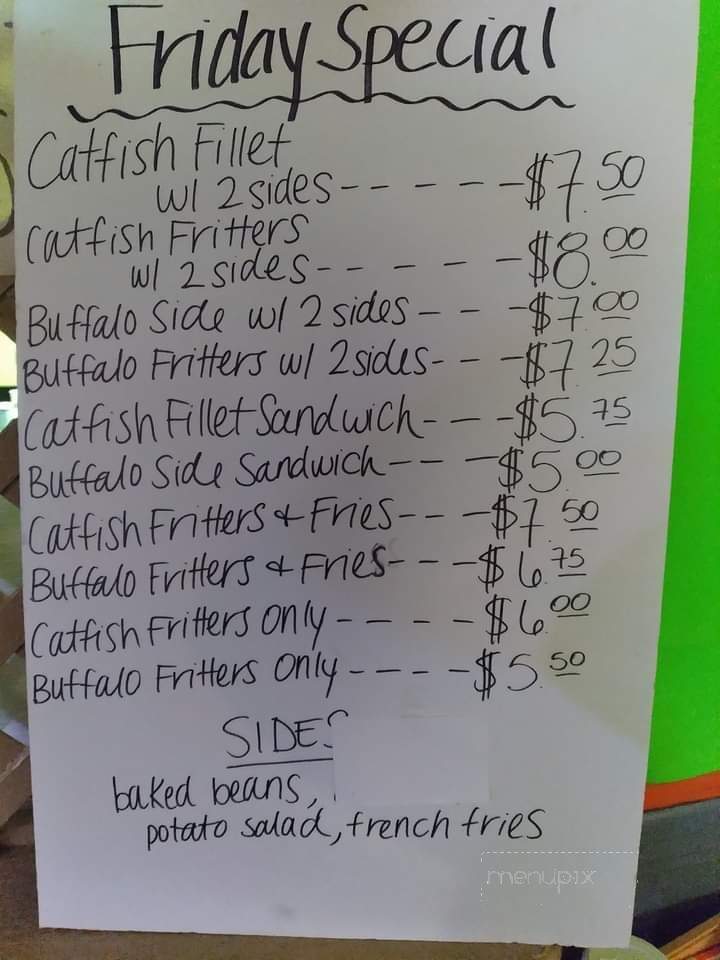 Friday Special
Catfish Fillet
w/ 2 sides - - - - - - $7.50
Catfish Fritters
w/ 2 sides - - - - - $8.00
Buffalo Side w/ 2 sides - - - $7.00
Buffalo Fritters w/ 2 sides - - - $7.25
Catfish Fillet Sandwich - - - $5.75
Buffalo Side Sandwich - - - $5.00
Catfish Fritters & Fries - - - - $7.50
Buffalo Fritters & Fries - - - - $6.75
Catfish Fritters Only - - - - - $6.00
Buffalo Fritters Only - - - - - $5.50
SIDES
baked beans,
potato salad, french fries
menupix